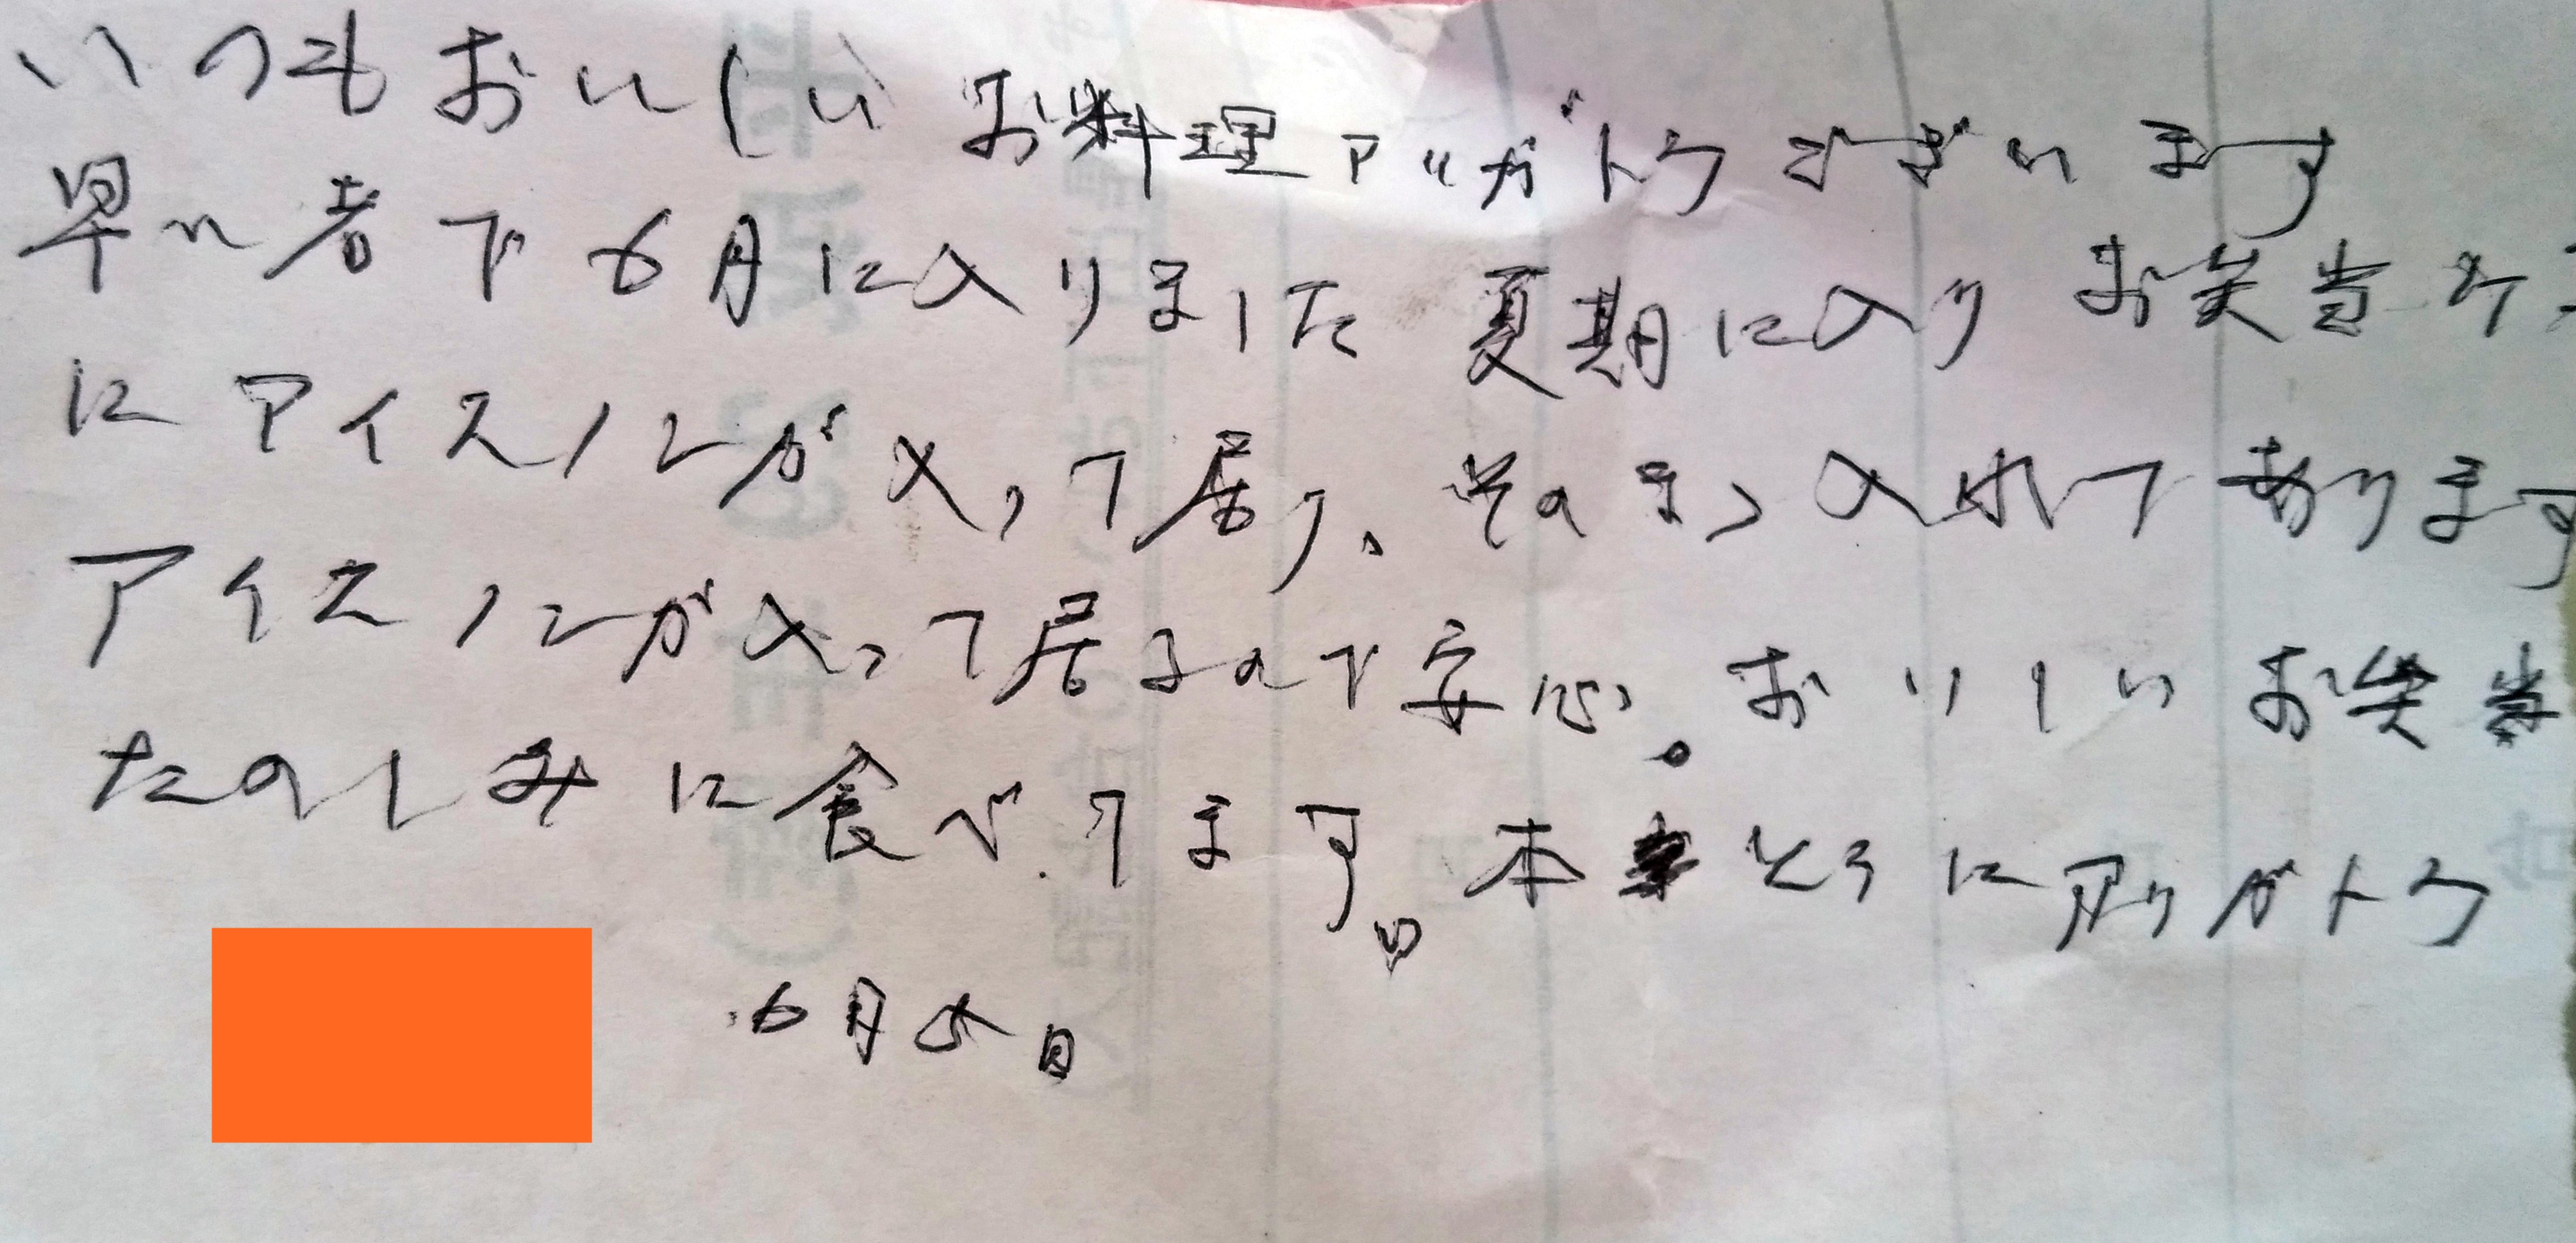 いつもおいしいお料理アリガトウございます
早い者で6月に入りました 夏期に入り お弁当ケース
にアイスノンが入って居り、そのまゝ入れてあります
アイスノンが入って居るので安心。おいしいお弁当
たのしみに食べてます。本とうにアリガトウ
6月 日